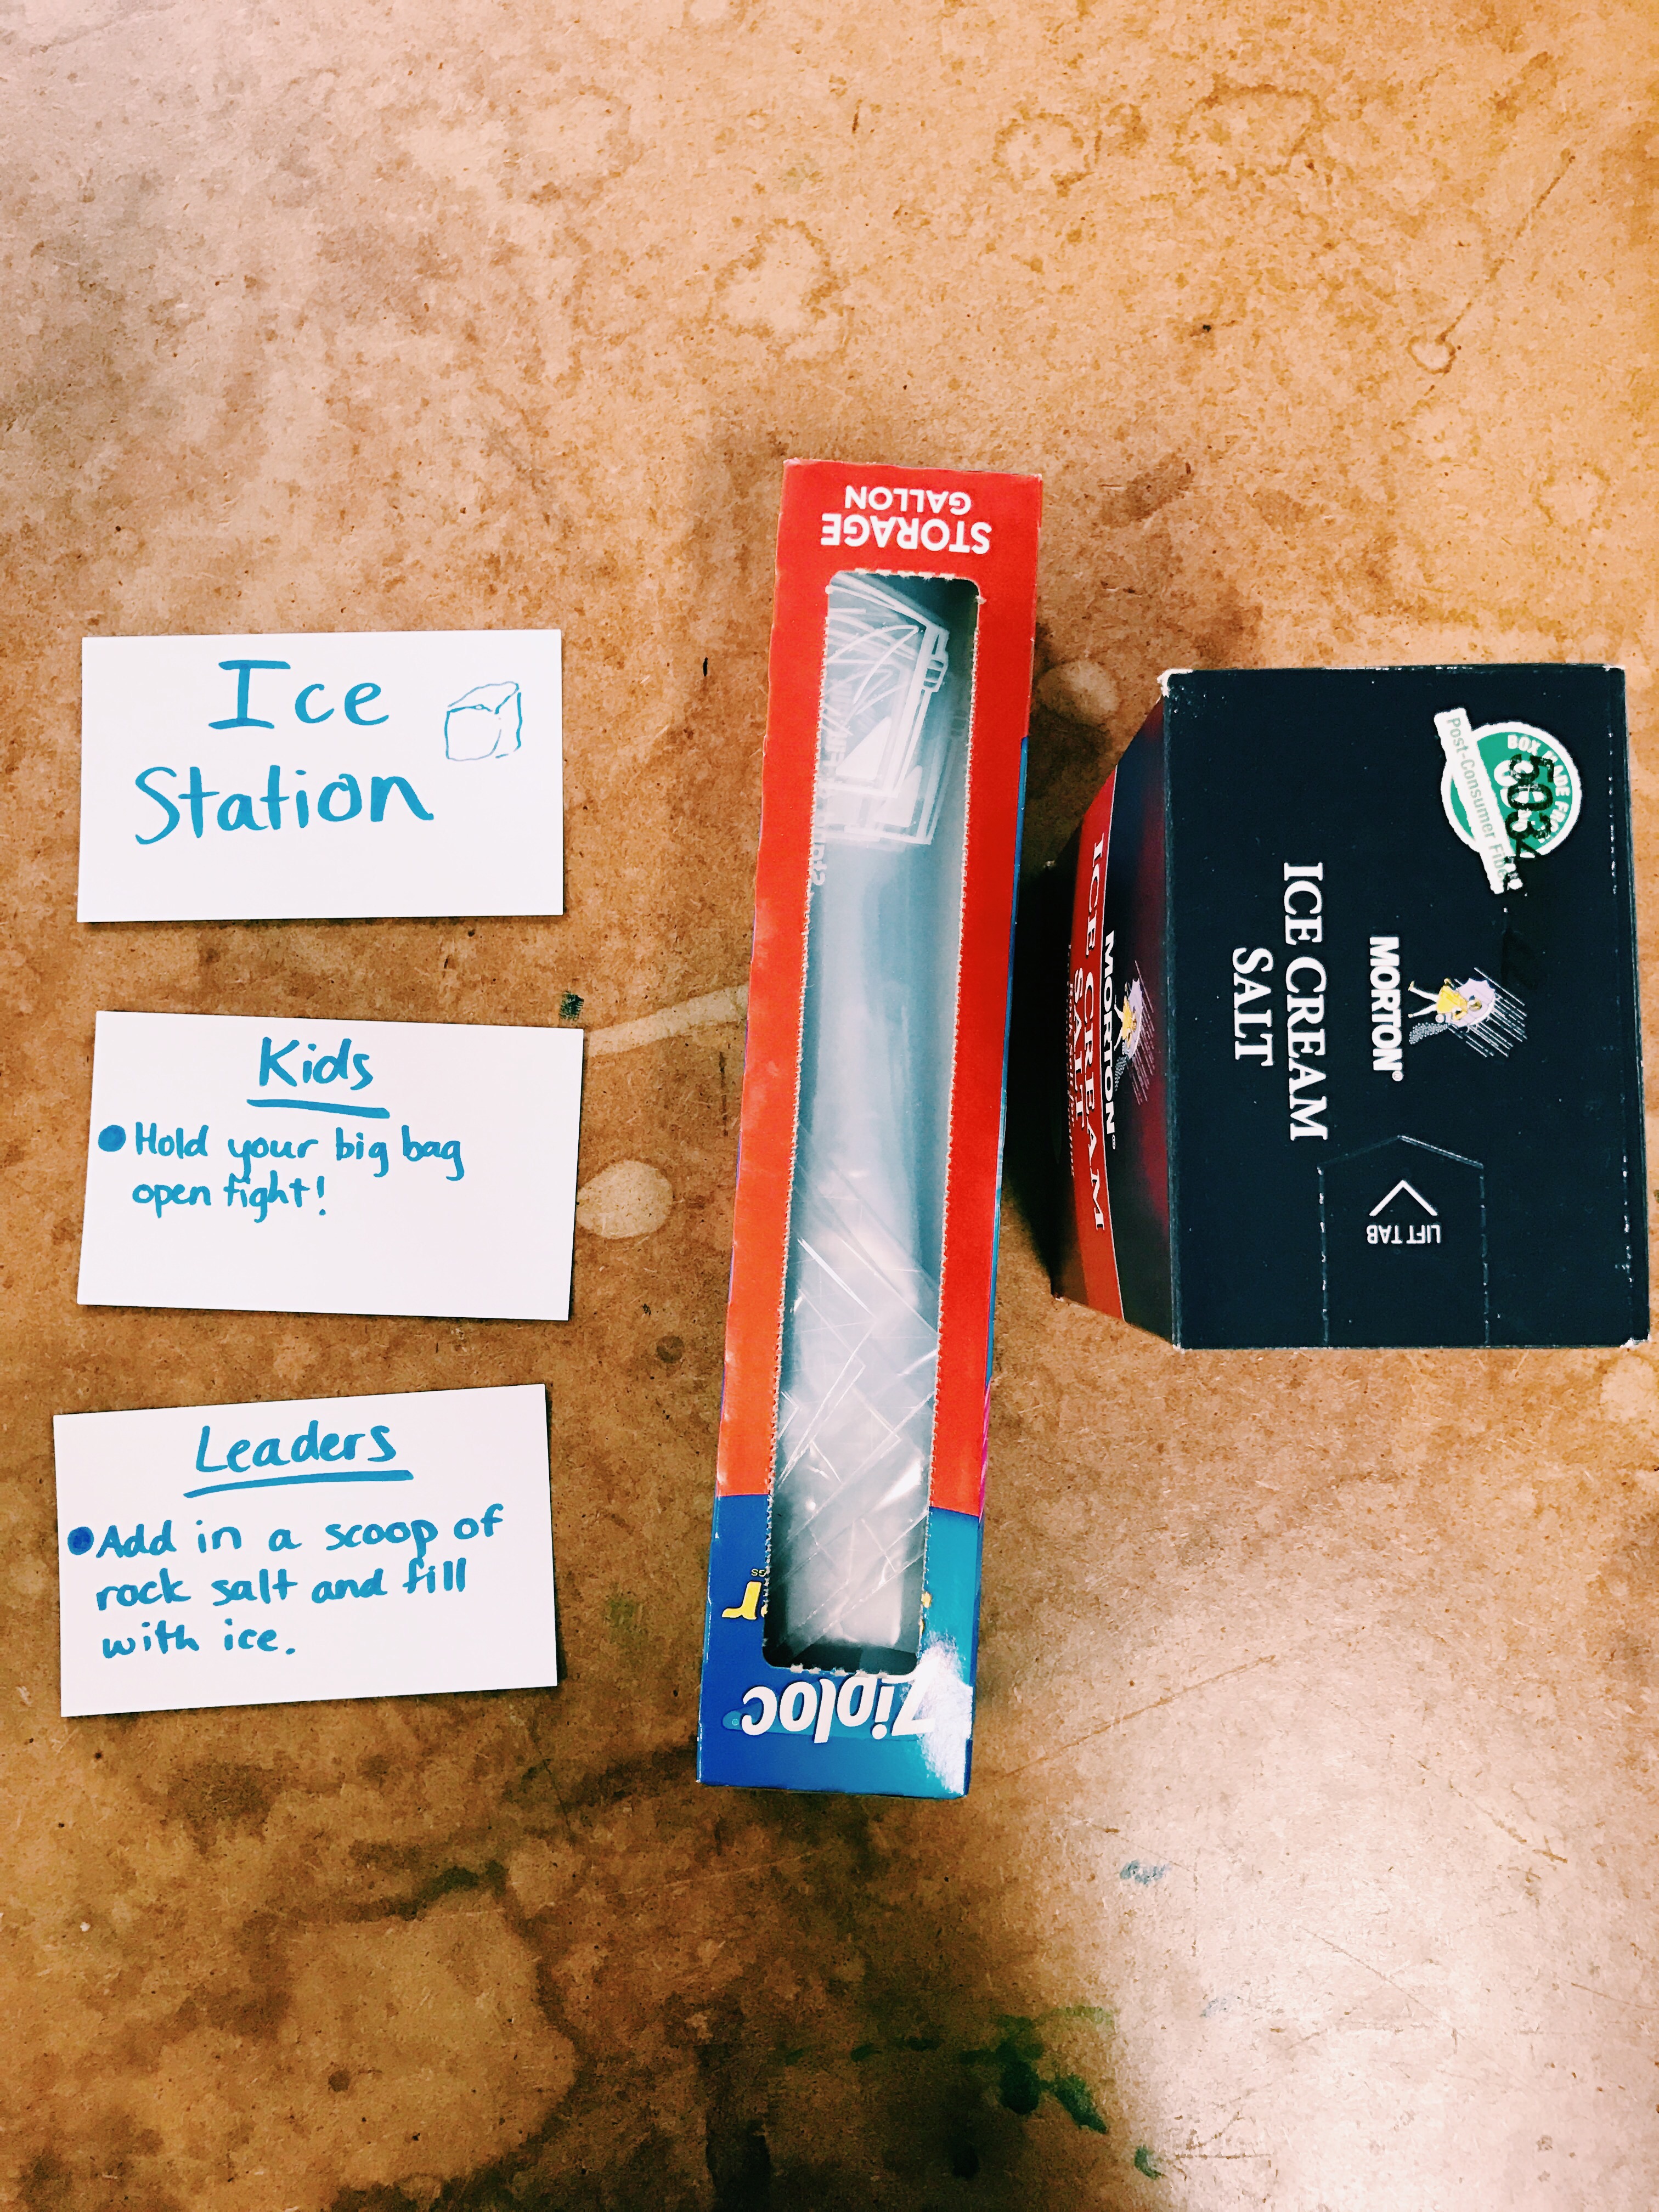 Ice
Station
Kids
Hold your big bag
open tight!
Leaders
Add in a scoop of
rock salt and fill
with ice.
STORAGE
GALLON
Ziploc
MORTON®
ICE CREAM
SALT
MORTON®
ICE CREAM
SALT
LIFT TAB
BOX MADE FROM
Post-Consumer Fiber